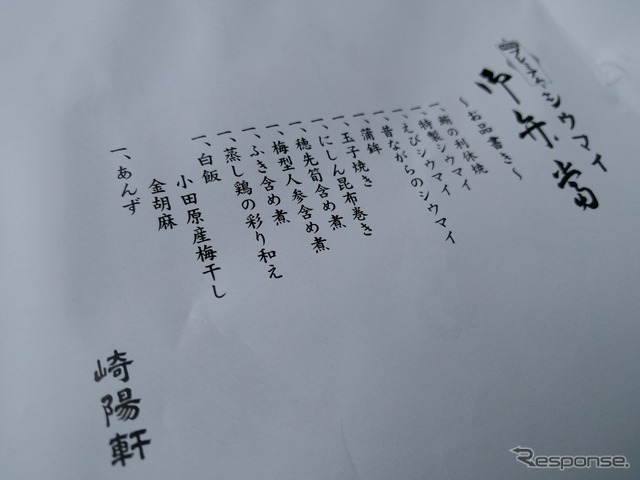 プレミアムシウマイ
御弁當
～お品書き～
一、鰆の利休焼
一、特製シウマイ
一、えびシウマイ
一、昔ながらのシウマイ
一、蒲鉾
一、玉子焼き
一、にしん昆布巻き
一、穂先筍含め煮
一、梅型人参含め煮
一、ふき含め煮
一、蒸し鶏の彩り和え
一、白飯
小田原産梅干し
金胡麻
一、あんず
崎陽軒
Response.